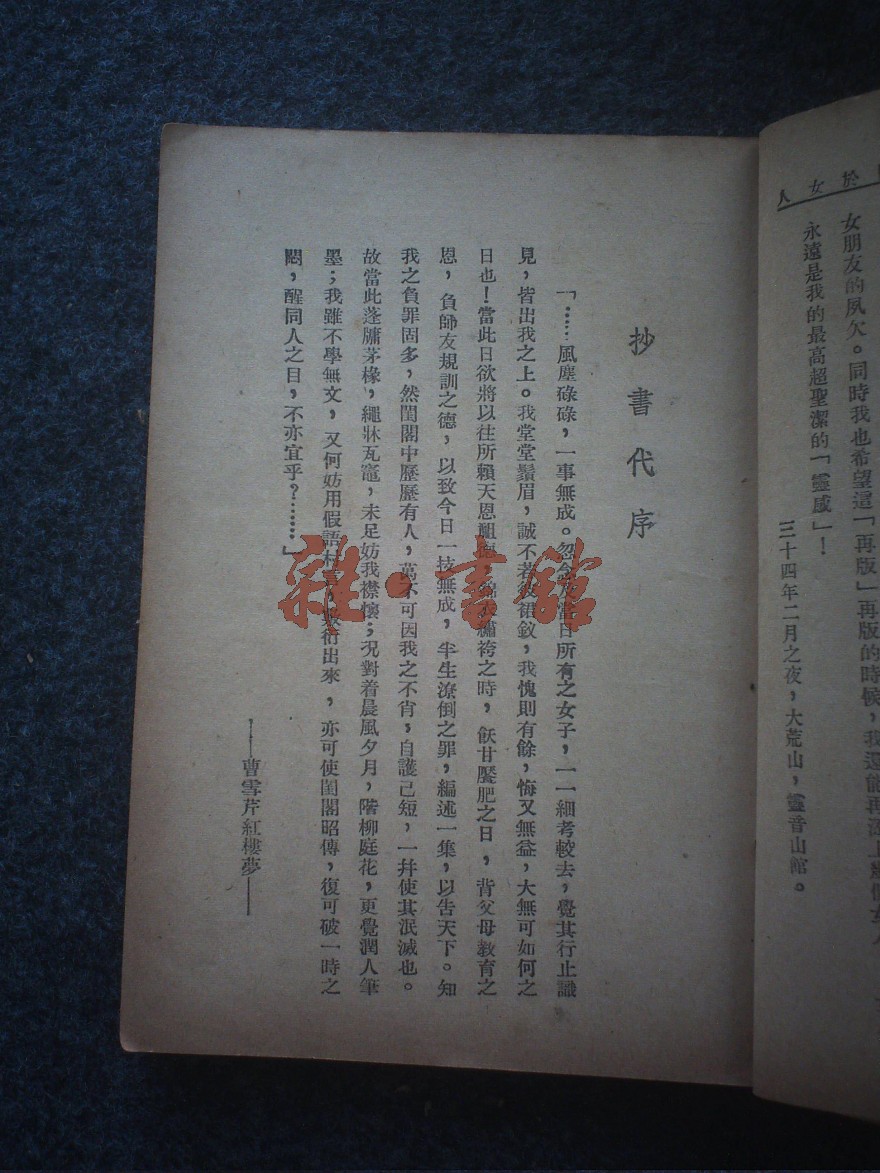 於女人
女朋友的夙欠。同時我也希望這「再版」再版的時候,我還能再添上幾個女人
永遠是我的最高超聖潔的「靈感」!
三十四年二月之夜,大荒山,靈音山館。
抄書代序
「……風塵碌碌,一事無成。忽念及當日所有之女子,一一細考較去,覺其行止識
見,皆出我之上。我堂堂鬚眉,誠不若彼裙釵,我愧則有餘,悔又無益,大無可如何之
日也!當此日欲將以往所賴天恩祖德,錦衣繡袴之時,飫甘饜肥之日,背父母教育之
恩,負師友規訓之德,以致今日一技無成,半生潦倒之罪,編述一集,以告天下。知
我之負罪固多,然閨閣中歷歷有人,萬不可因我之不肖,自護己短,一幷使其泯滅也。
故當此蓬牖茅椽,繩牀瓦竈,未足妨我襟懷;况對着晨風夕月,階柳庭花,更覺潤人筆
墨;我雖不學無文,又何妨用假語村言敷衍出來,亦可使閨閣昭傳,復可破一時之
悶,醒同人之目,不亦宜乎?……」
——曹雪芹紅樓夢——
雜·書館